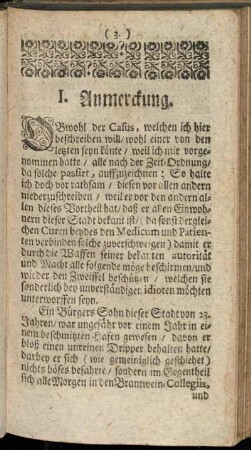 ( 3. )
I. Anmerckung.
OBwohl der Casus, welchen ich hier
beschreiben will/ wohl einer von den
letzten seyn könte / weil ich mir vorge-
nommen hatte / alle nach der Zeit-Ordnung/
da solche passirt, auffzuzeichnen ; So halte
ich doch vor rathsam / diesen vor allen andern
niederzuschreiben / weil er vor den andern al-
len dieses Vortheil hat/ daß er allen Einwoh-
nern dieser Stadt bekant ist/ da sonst derglei-
chen Curen beydes den Medicum und Patien-
ten verbinden solche zuverschweigen ) damit er
durch die Waffen seiner bekanten autorität
und Macht alle folgende möge beschirmen/ und
wieder den Zweiffel beschützen / welchen sie
sonderlich bey unverständigen idioten möchten
unterworffen seyn.
Ein Bürgers Sohn dieser Stadt von 23.
Jahren/ war ungefähr vor einem Jahr in ei-
nem beschmitzten Hafen gewesen / davon er
bloß einen unreinen Dripper behalten hatte/
darbey er sich / wie gemeiniglich geschiehet )
nichts böses befahrte/ sondern im Gegentheil
sich alle Morgen in den Brantwein-Collegiis,
und